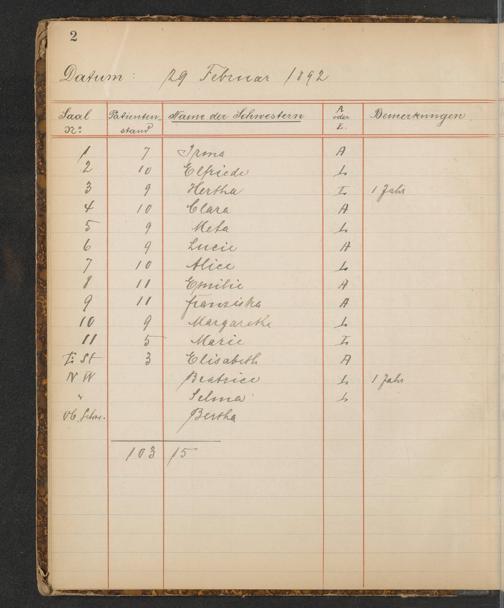 2
Datum: 29 Februar 1892
Saal No. Patienten-stand Name der Schwestern A oder L. Bemerkungen
1 7 Irma A
2 10 Elfriede L
3 9 Hertha L 1 Jahr
4 10 Clara A
5 9 Meta L
6 9 Lucie A
7 10 Alice L
8 11 Emilie A
9 11 Franziska A
10 9 Margarethe L
11 5 Marie L
I. St 3 Elisabeth A
N W Beatrice L 1 Jahr
" Selma L
Ob. Schw. Bertha
103 15